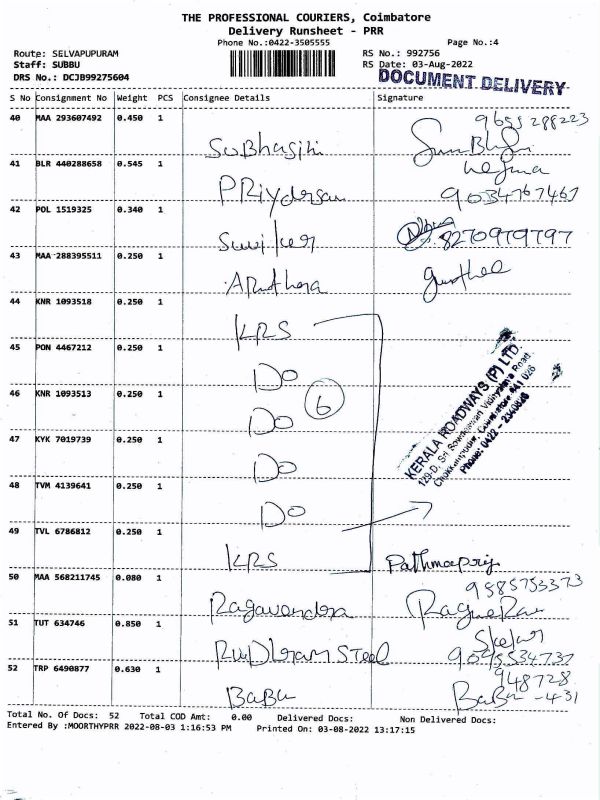 THE PROFESSIONAL COURIERS, Coimbatore
Delivery Runsheet - PRR
Phone No.:0422-3505555 Page No.:4
Route: SELVAPUPURAM RS No.: 992756
Staff: SUBBU RS Date: 03-Aug-2022
DRS No.: DCJB99275604 DOCUMENT DELIVERY
S No Consignment No Weight PCS Consignee Details Signature
40 MAA 293607492 0.450 1 9655288223
SuBhasini
41 BLR 440288658 0.545 1
PRiydersan 9034767467
42 POL 1519325 0.340 1
8270979797
43 MAA 288395511 0.250 1
44 KNR 1093518 0.250 1
KRS
45 PON 4467212 0.250 1
Do
46 KNR 1093513 0.250 1 6
Do
47 KYK 7019739 0.250 1
Do
48 TVM 4139641 0.250 1
Do
49 TVL 6786812 0.250 1
KRS Pathmapriy
KERALA ROADWAYS (P) LTD.
129-D, Sri Sowdeswari Vidhyalaya Road
Chokkampudur, Coimbatore 641 026
Phone: 0422 - 2340826
50 MAA 568211745 0.080 1 9585753373
Ragavendra
51 TUT 634746 0.850 1
Steel 9095534737
52 TRP 6490877 0.630 1 948728
BaBu BaBu -431
Total No. Of Docs: 52 Total COD Amt: 0.00 Delivered Docs: Non Delivered Docs:
Entered By :MOORTHYPRR 2022-08-03 1:16:53 PM Printed On: 03-08-2022 13:17:15